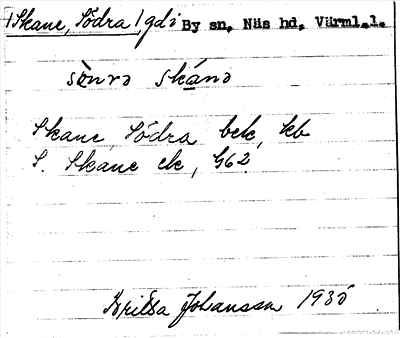 /Skane, Södra/ gdi By sn, Näs hd, Värml.l.
sònrə skánə
Skane, Södra bek, kb
S. Skane ek, G62
Britta Johansson 1930